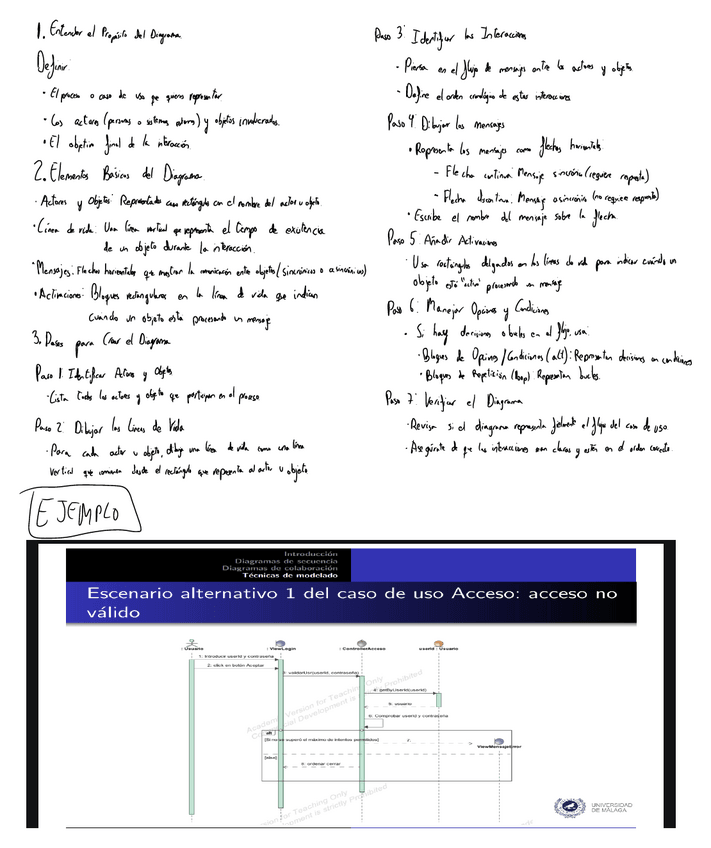 1. Entender el Propósito del Diagrama
Definir:
· El proceso o caso de uso que quiero representar
· Los actores (personas o sistemas externos) y objetos involucrados.
· El objetivo final de la interacción
2. Elementos Básicos del Diagrama
· Actores y Objetos: Representados como rectángulos con el nombre del actor u objeto.
· Línea de vida: Una línea vertical que representa el tiempo de existencia
de un objeto durante la interacción.
· Mensajes: Flechas horizontales que muestran la comunicación entre objetos (sincrónicos o asincrónicos)
· Activaciones: Bloques rectangulares en la línea de vida que indican
cuando un objeto está procesando un mensaje
3. Pasos para Crear el Diagrama
Paso 1. Identificar Actores y Objetos
· Lista todos los actores y objetos que participan en el proceso.
Paso 2: Dibujar las Líneas de Vida
· Para cada actor u objeto, dibuja una línea de vida como una línea
vertical que comienza desde el rectángulo que representa al actor u objeto
Paso 3: Identificar las Interacciones
· Piensa en el flujo de mensajes entre los actores y objetos.
· Define el orden cronológico de estas interacciones
Paso 4. Dibujar los mensajes
· Representa los mensajes como flechas horizontales:
- Flecha continua: Mensaje sincrónico (requiere respuesta)
- Flecha discontinua: Mensaje asincrónico (no requiere respuesta)
· Escribe el nombre del mensaje sobre la flecha.
Paso 5. Añadir Activaciones
· Usa rectángulos delgados en las líneas de vida para indicar cuándo un
objeto está "activo" procesando un mensaje
Paso 6: Manejar Opciones y Condiciones
· Si hay decisiones o bucles en el flujo, usa:
· Bloques de Opciones/Condiciones (alt): Representan decisiones con condiciones
· Bloques de Repetición (loop): Representan bucles.
Paso 7: Verificar el Diagrama
· Revisa si el diagrama representa fielmente el flujo del caso de uso
· Asegúrate de que las interacciones sean claras y estén en el orden correcto.
EJEMPLO
Introducción
Diagramas de secuencia
Diagramas de colaboración
Técnicas de modelado
Escenario alternativo 1 del caso de uso Acceso: acceso no
válido
: Usuario
: ViewLogin
: ControllerAcceso
userId : Usuario
1: Introducir userId y contraseña
2: click en botón Aceptar
3: validarUsr(userId, contraseña)
4: getByUserId(userId)
5: usuario
6: Comprobar userId y contraseña
alt
[Si no se superó el máximo de intentos permitidos]
7:
ViewMensajeError
[else]
8: ordenar cerrar
Academic Version for Teaching Only
Commercial Development is strictly Prohibited
UNIVERSIDAD
DE MÁLAGA